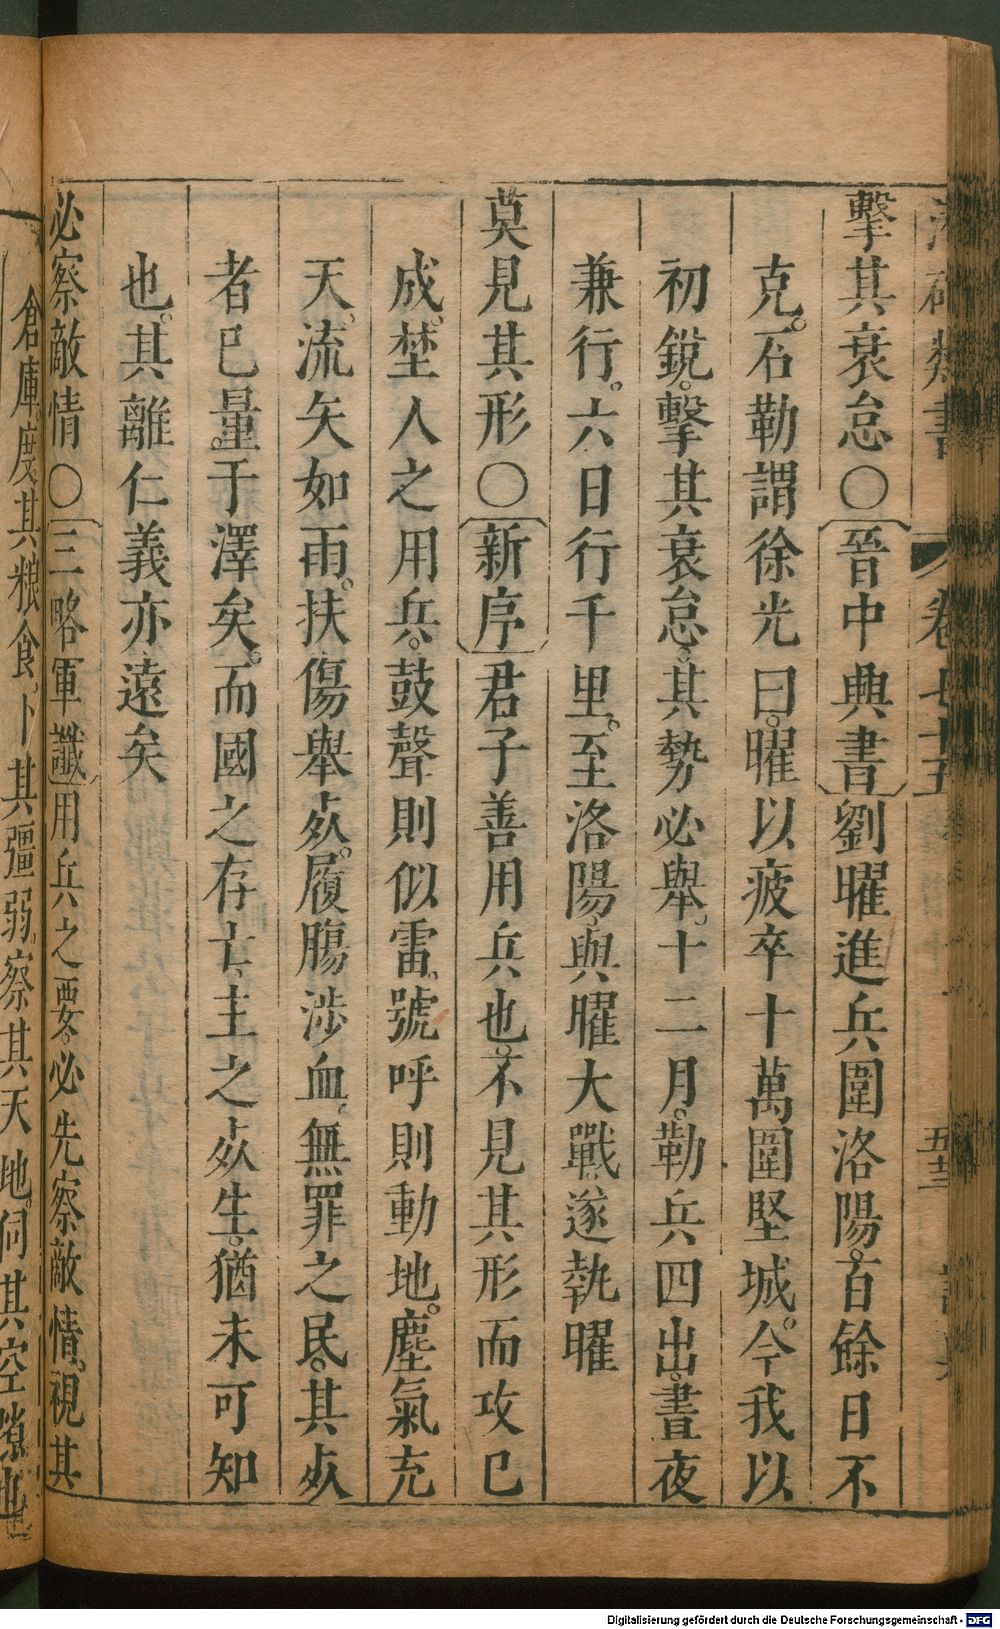 卷七十五
擊其衰怠〇晉中興書劉曜進兵圍洛陽。百餘日不
克。石勒謂徐光曰。曜以疲卒十萬圍堅城。今我以
初銳。擊其衰怠。其勢必舉。十二月。勒兵四出。晝夜
兼行。六日行千里。至洛陽。與曜大戰。遂執曜
莫見其形〇新序君子善用兵也。不見其形而攻已
成。埜人之用兵。鼓聲則似雷。號呼則動地。塵氣充
天。流矢如雨。扶傷舉㱔。履膓涉血。無罪之民。其㱔
者已量于澤矣。而國之存亡。主之㱔生。猶未可知
也。其離仁義亦遠矣
必察敵情〇三略軍讖用兵之要。必先察敵情。視其
倉庫。度其粮食。卜其彊弱。察其天地。伺其空隙
Digitalisierung gefördert durch die Deutsche Forschungsgemeinschaft - DFG